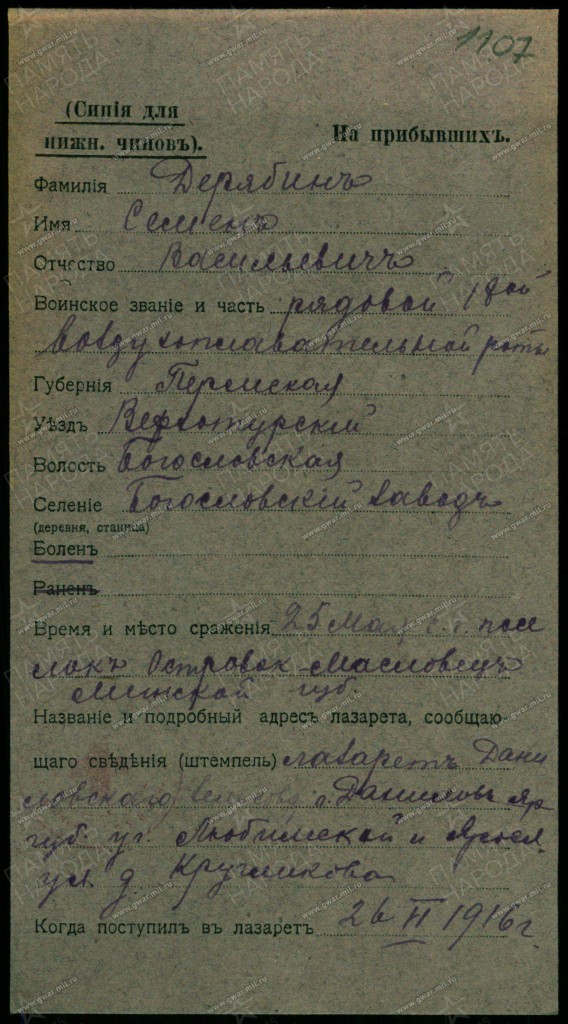 1107
(Синія для
нижн. чиновъ).
На прибывшихъ.
Фамилія Дерябинъ
Имя Семенъ
Отчество Васильевичъ
Воинское званіе и часть рядовой 1дой
воздухоплавательной роты
Губернія Пермская
Уѣздъ Верхотурскій
Волость Богословская
Селеніе Богословскій заводъ
(деревня, станица)
Боленъ
Раненъ
Время и мѣсто сраженія 25 Мая с.г. пос
локъ Островок-Масловецъ
Минской губ.
Названіе и подробный адресъ лазарета, сообщаю-
щаго свѣдѣнія (штемпель) лазаретъ Дани
ловскаго г. Даниловъ Яр
губ. уг. Любимской и Яросл.
ул. д. Кругликова
Когда поступилъ въ лазаретъ 26 VI 1916 г